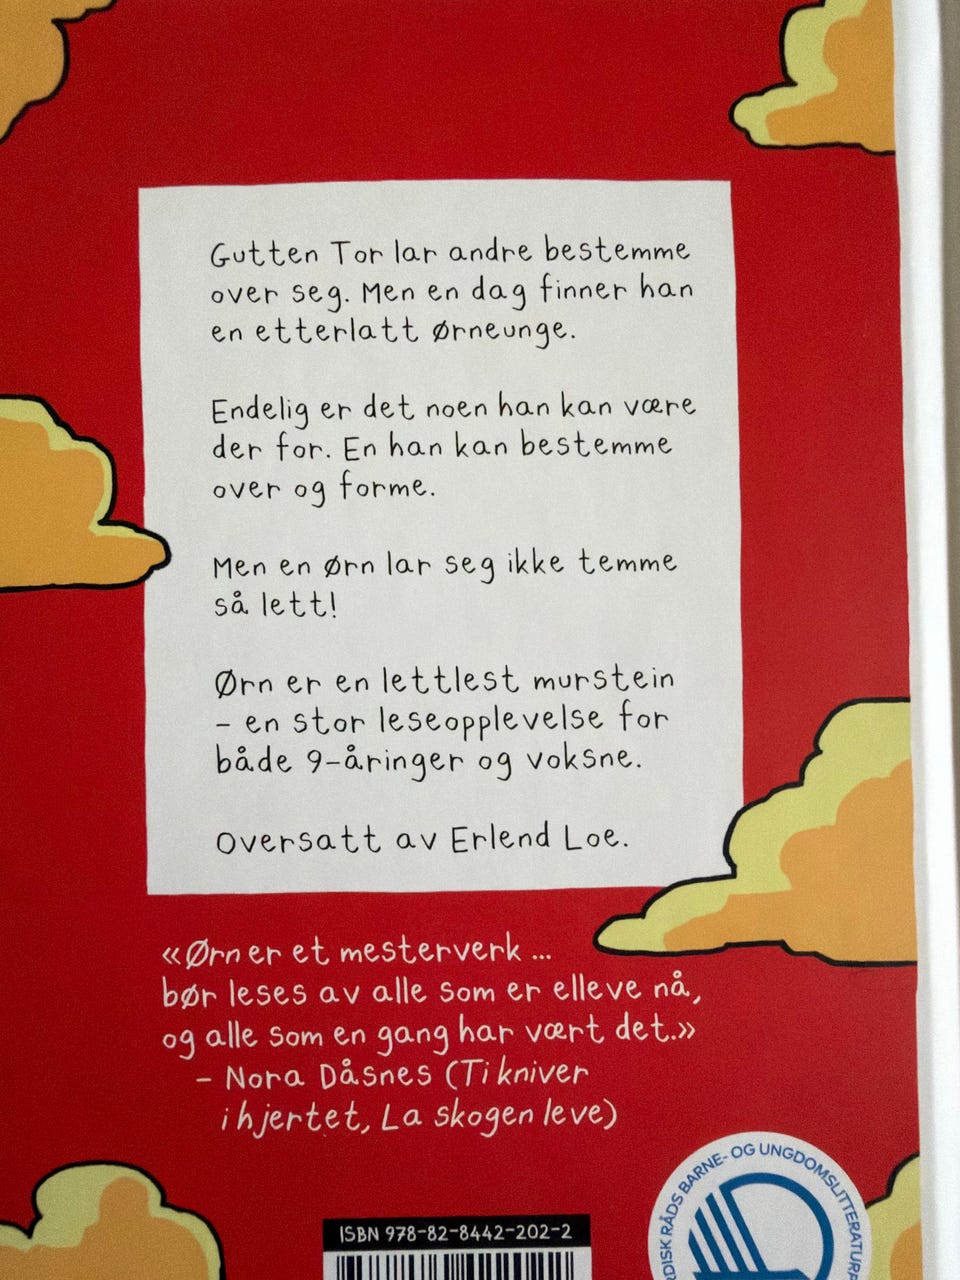 Gutten Tor lar andre bestemme
over seg. Men en dag finner han
en etterlatt ørneunge.
Endelig er det noen han kan være
der for. En han kan bestemme
over og forme.
Men en ørn lar seg ikke temme
så lett!
Ørn er en lettlest murstein
– en stor leseopplevelse for
både 9-åringer og voksne.
Oversatt av Erlend Loe.
«Ørn er et mesterverk ...
bør leses av alle som er elleve nå,
og alle som en gang har vært det.»
– Nora Dåsnes (Ti kniver
i hjertet, La skogen leve)
RDISK RÅDS BARNE- OG UNGDOMSLITTERATUR
ISBN 978-82-8442-202-2